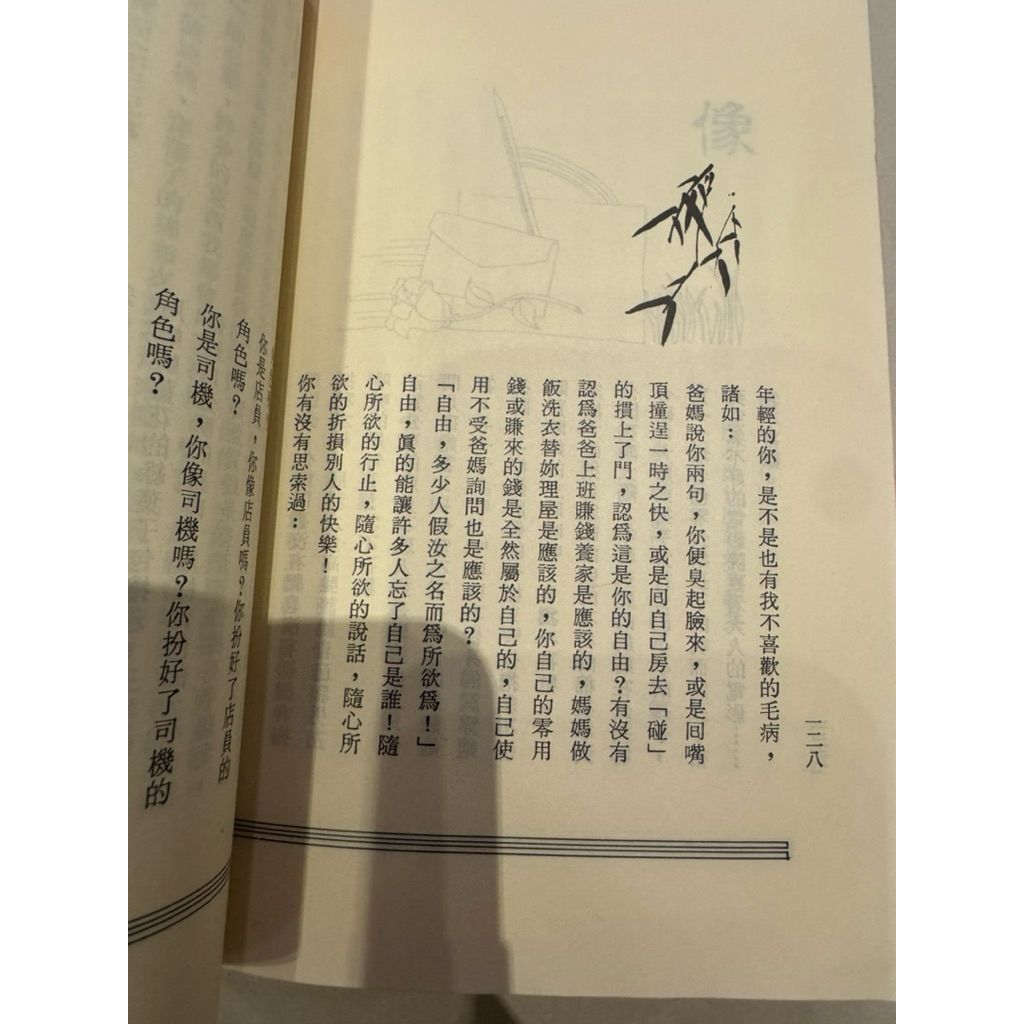 一二八
年輕的你，是不是也有我不喜歡的毛病，
諸如：
爸媽說你兩句，你便臭起臉來，或是回嘴
頂撞逞一時之快，或是回自己房去「碰」
的摜上了門，認爲這是你的自由？有沒有
認爲爸爸上班賺錢養家是應該的，媽媽做
飯洗衣替妳理屋是應該的，你自己的零用
錢或賺來的錢是全然屬於自己的，自己使
用不受爸媽詢問也是應該的？
「自由，多少人假汝之名而爲所欲爲！」
自由，眞的能讓許多人忘了自己是誰！隨
心所欲的行止，隨心所欲的說話，隨心所
欲的折損別人的快樂！
你有沒有思索過：
你是店員，你像店員嗎？你扮好了店員的
角色嗎？
你是司機，你像司機嗎？你扮好了司機的
角色嗎？
像